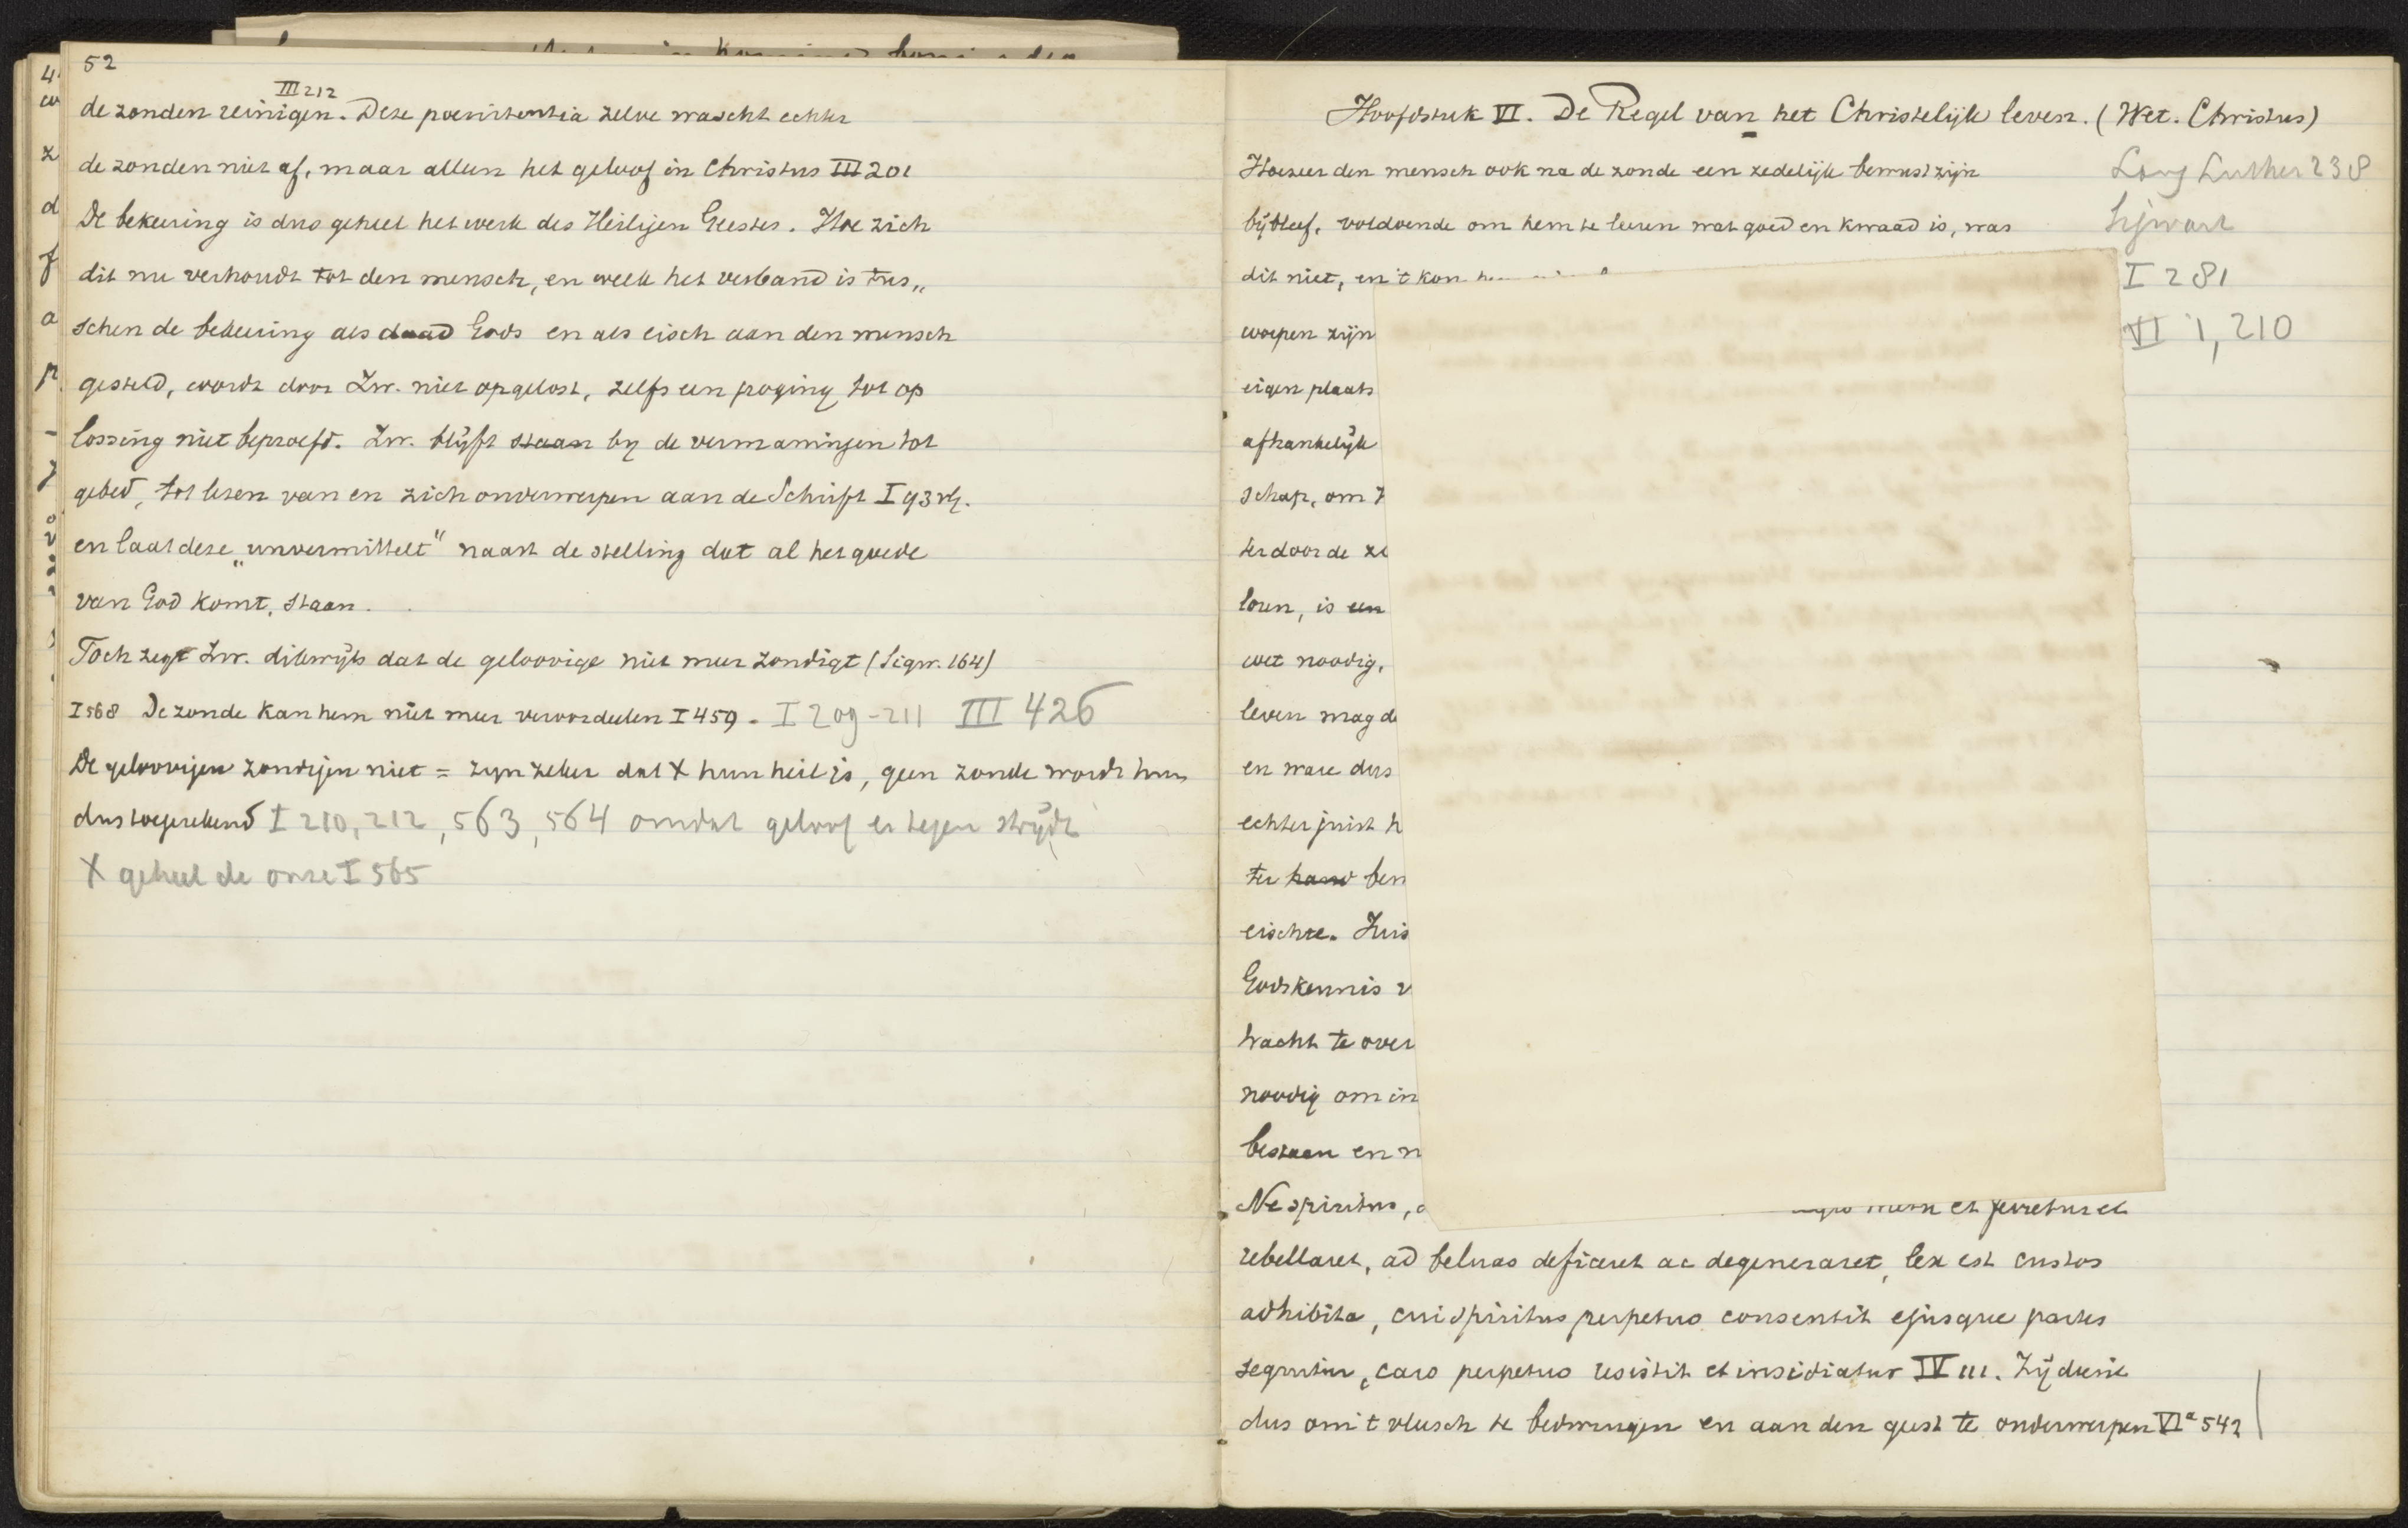 52
III 212
de zonden reinigen. Deze poenitentia zelve wascht echter
de zonden niet af, maar alleen het geloof in Christus III 201
De bekeering is dus geheel het werk des Heiligen Geestes. Hoe zich
dit nu verhoudt tot den mensch, en welk het verband is tus„
schen de bekeering als daad Gods en als eisch aan den mensch
gesteld, wordt door Zw. niet opgelost, zelfs een poging tot op
lossing niet beproefd. Zw. blijft staan by de vermaningen tot
gebed, tot lezen van en zich onderwerpen aan de Schrift I 93 vlg.
en laat deze „unvermittelt" naast de stelling dat al het goede
van God komt, staan.
Toch zegt Zw. dikwijls dat de geloovige niet meer zondigt (Sigw. 164)
I 568 De zonde kan hem niet meer veroordeelen I 459. I 209-211 III 426
De geloovigen zondigen niet = zyn zeker dat X hun heil is, geen zonde wordt hun
dus toegerekend I 210, 212, 563, 564 omdat geloof er tegen strijdt
X geheel de onze I 565
Hoofdstuk VI. De Regel van het Christelijk leven. (Wet. Christus)
Hoezeer den mensch ook na de zonde een zedelijk bewustzijn
Lang Luther 238
bijbleef, voldoende om hem te leeren wat goed en kwaad is, was
Sigwart
dit niet, en 't kon
I 281
worpen zijn
VI 1, 210
eigen plaats
afhankelijk
schap, om
ter door de
loren, is een
wet noodig,
leven mag
en ware dus
echter juist
ter hand
eischte.
Godskennis
kracht te over
noodig om in
bestaan en
Ne spiritus,
et
rebellaret, ad beluas deficeret ac degeneraret, lex est custos
adhibita, cui spiritus perpetuo consentit ejusque partes
sequitur, caro perpetuo resistit et insidiatur IV 111. Zij dient
dus om 't vleesch te bedwingen en aan den geest te onderwerpen VIa 542